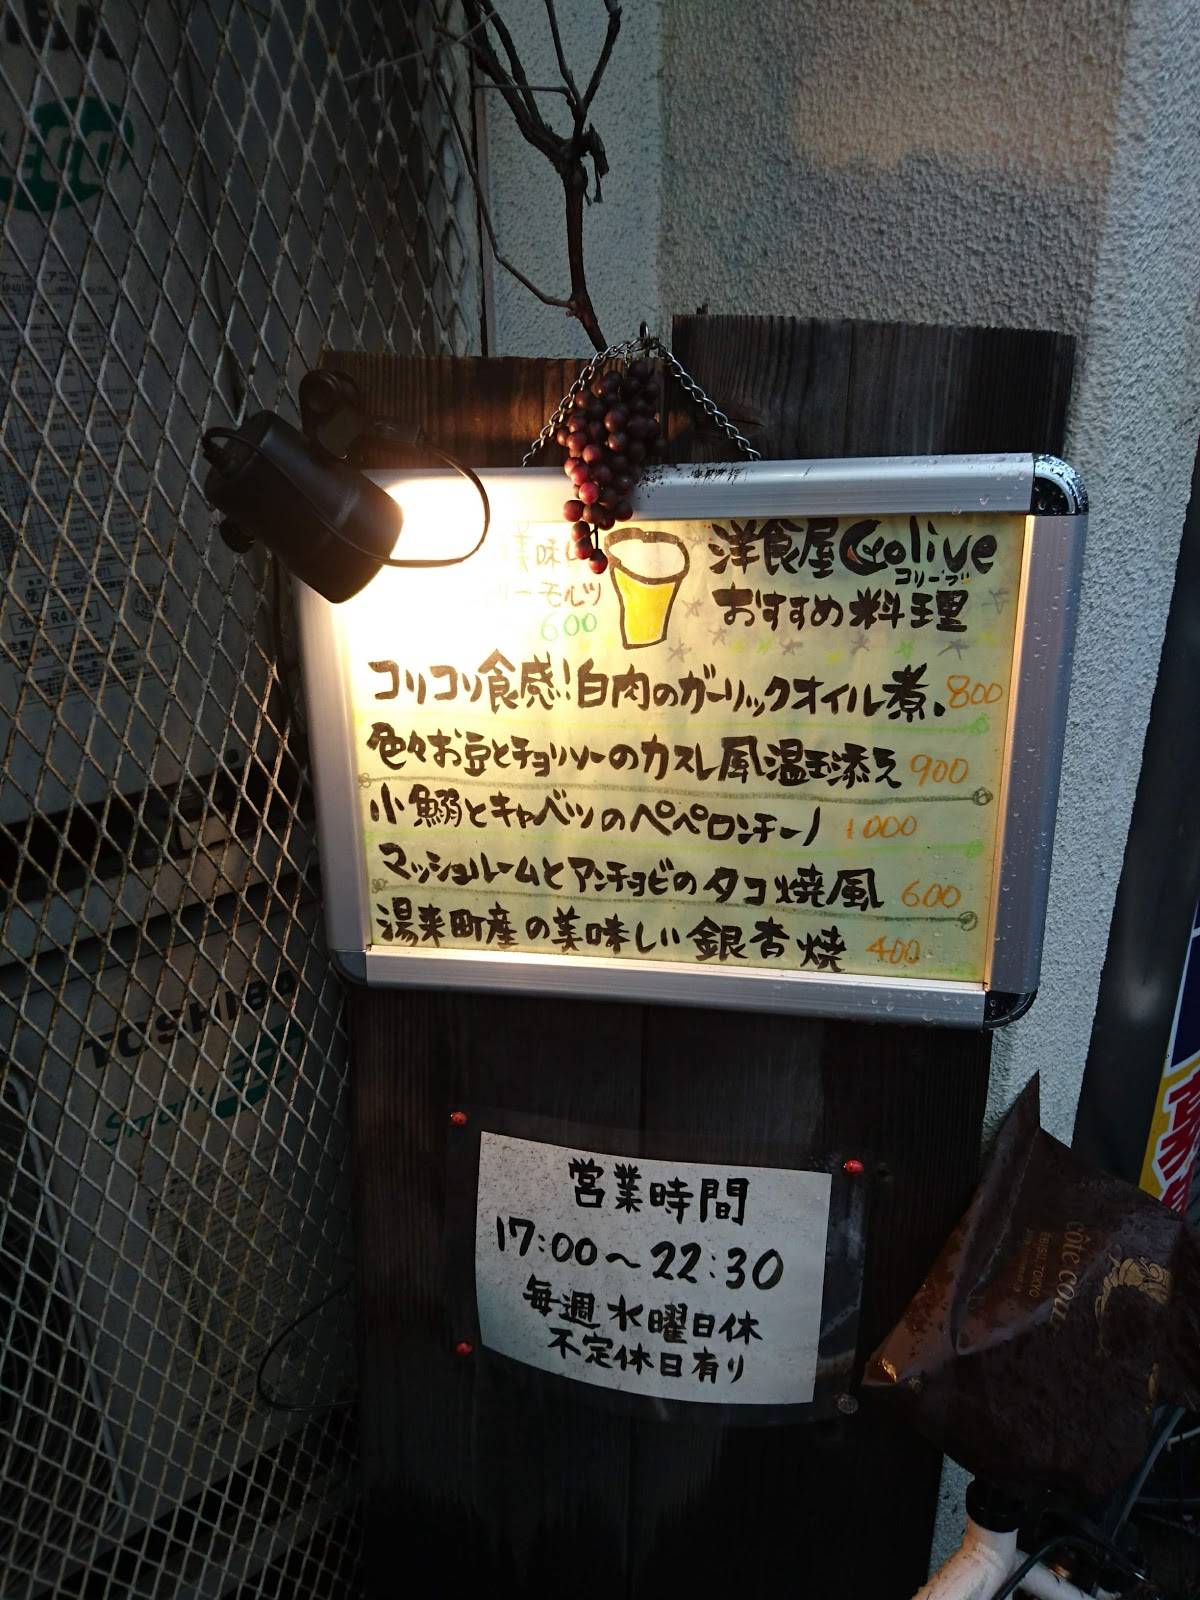 美味し
ーモルツ
600
洋食屋Colive
コリーブ
おすすめ料理
コリコリ食感!白肉のガーリックオイル煮。800
色々お豆とチョリソーのカスレ風温玉添え 900
小鰯とキャベツのペペロンチーノ 1000
マッシュルームとアンチョビのタコ焼風 600
湯来町産の美味しい銀杏焼 400
営業時間
17:00~22:30
毎週水曜日休
不定休日有り
TOSHIBA
Smart
côte cour
EBISU, TOKYO